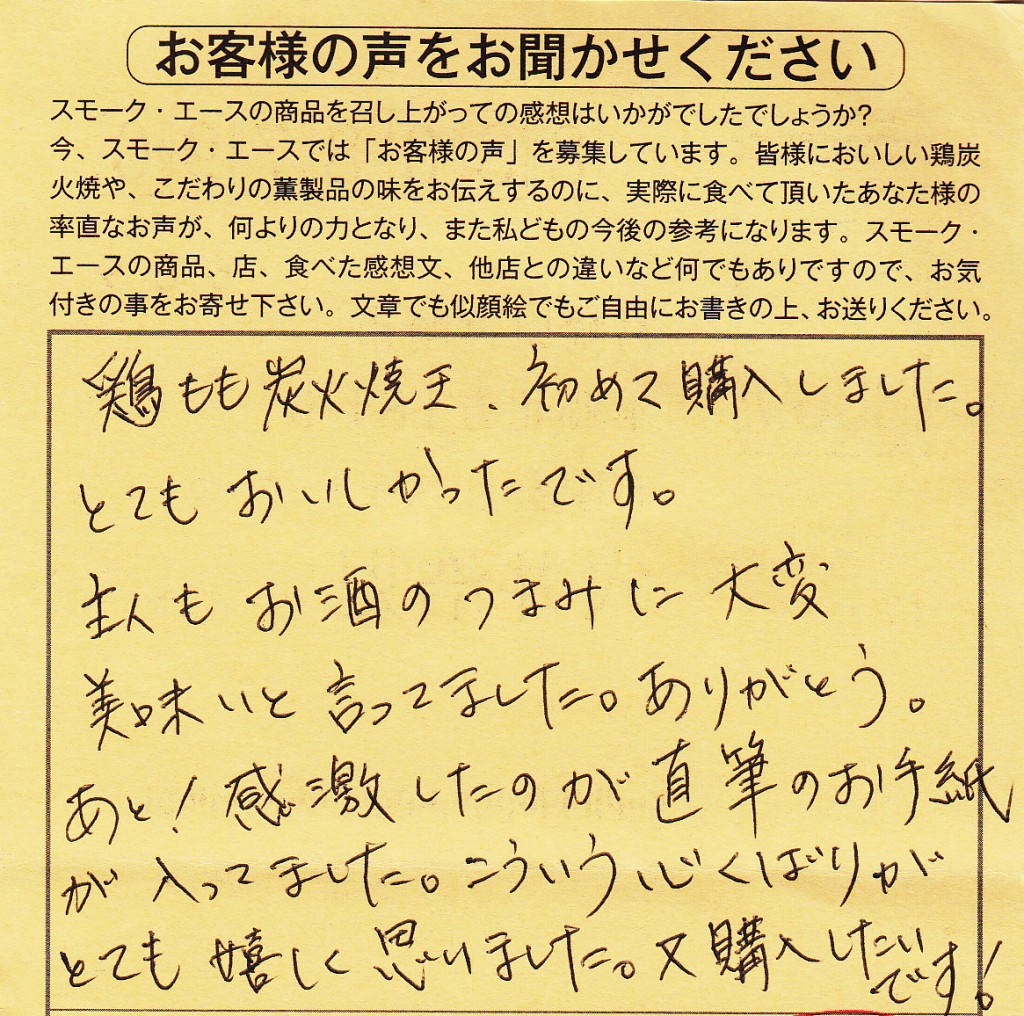 お客様の声をお聞かせください
スモーク・エースの商品を召し上がっての感想はいかがでしたでしょうか?
今、スモーク・エースでは「お客様の声」を募集しています。皆様においしい鶏炭
火焼や、こだわりの薫製品の味をお伝えするのに、実際に食べて頂いたあなた様の
率直なお声が、何よりの力となり、また私どもの今後の参考になります。スモーク・
エースの商品、店、食べた感想文、他店との違いなど何でもありですので、お気
付きの事をお寄せ下さい。文章でも似顔絵でもご自由にお書きの上、お送りください。
鶏もも炭火焼王、初めて購入しました。
とてもおいしかったです。
主人もお酒のつまみに大変
美味いと言ってました。ありがとう。
あと!感激したのが直筆のお手紙
が入ってました。こういう心くばりが
とても嬉しく思いました。又購入したい
です!